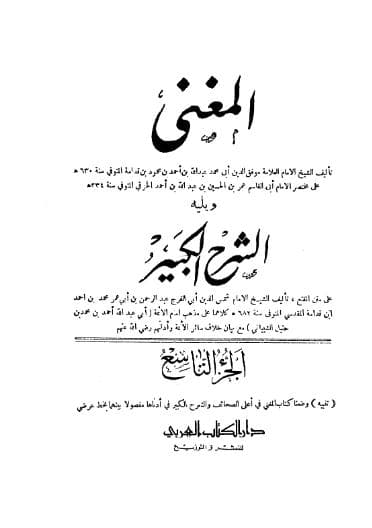 المغنى
تأليف الشيخ الامام العلامة موفق الدين أبي محمد عبدالله بن أحمد بن محمود بن قدامة المتوفى سنة ٦٣٠ ه
على مختصر الامام أبي القاسم عمر بن الحسين بن عبد الله بن أحمد الخرقي المتوفى سنة ٣٣٤ ه
ويليه
الشرح الكبير
على متن المقنع ، تأليف الشيخ الامام شمس الدين أبي الفرج عبد الرحمن بن أبي عمر محمد بن احمد
ابن قدامة المقدسي المتوفى سنة ٦٨٢ ه كلاهما على مذهب امام الأئمة ( أبي عبد الله أحمد بن محمد بن
حنبل الشيباني ) مع بيان خلاف سائر الأئمة وأدلتهم رضي الله عنهم
الجزء التاسع
( تنبيه ) وضعنا كتاب المغني في أعلى الصحائف والشرح الكبير في أدناها مفصولا بينهما بخط عرضي
دار الكتاب العربي
للنشر و التوزيع